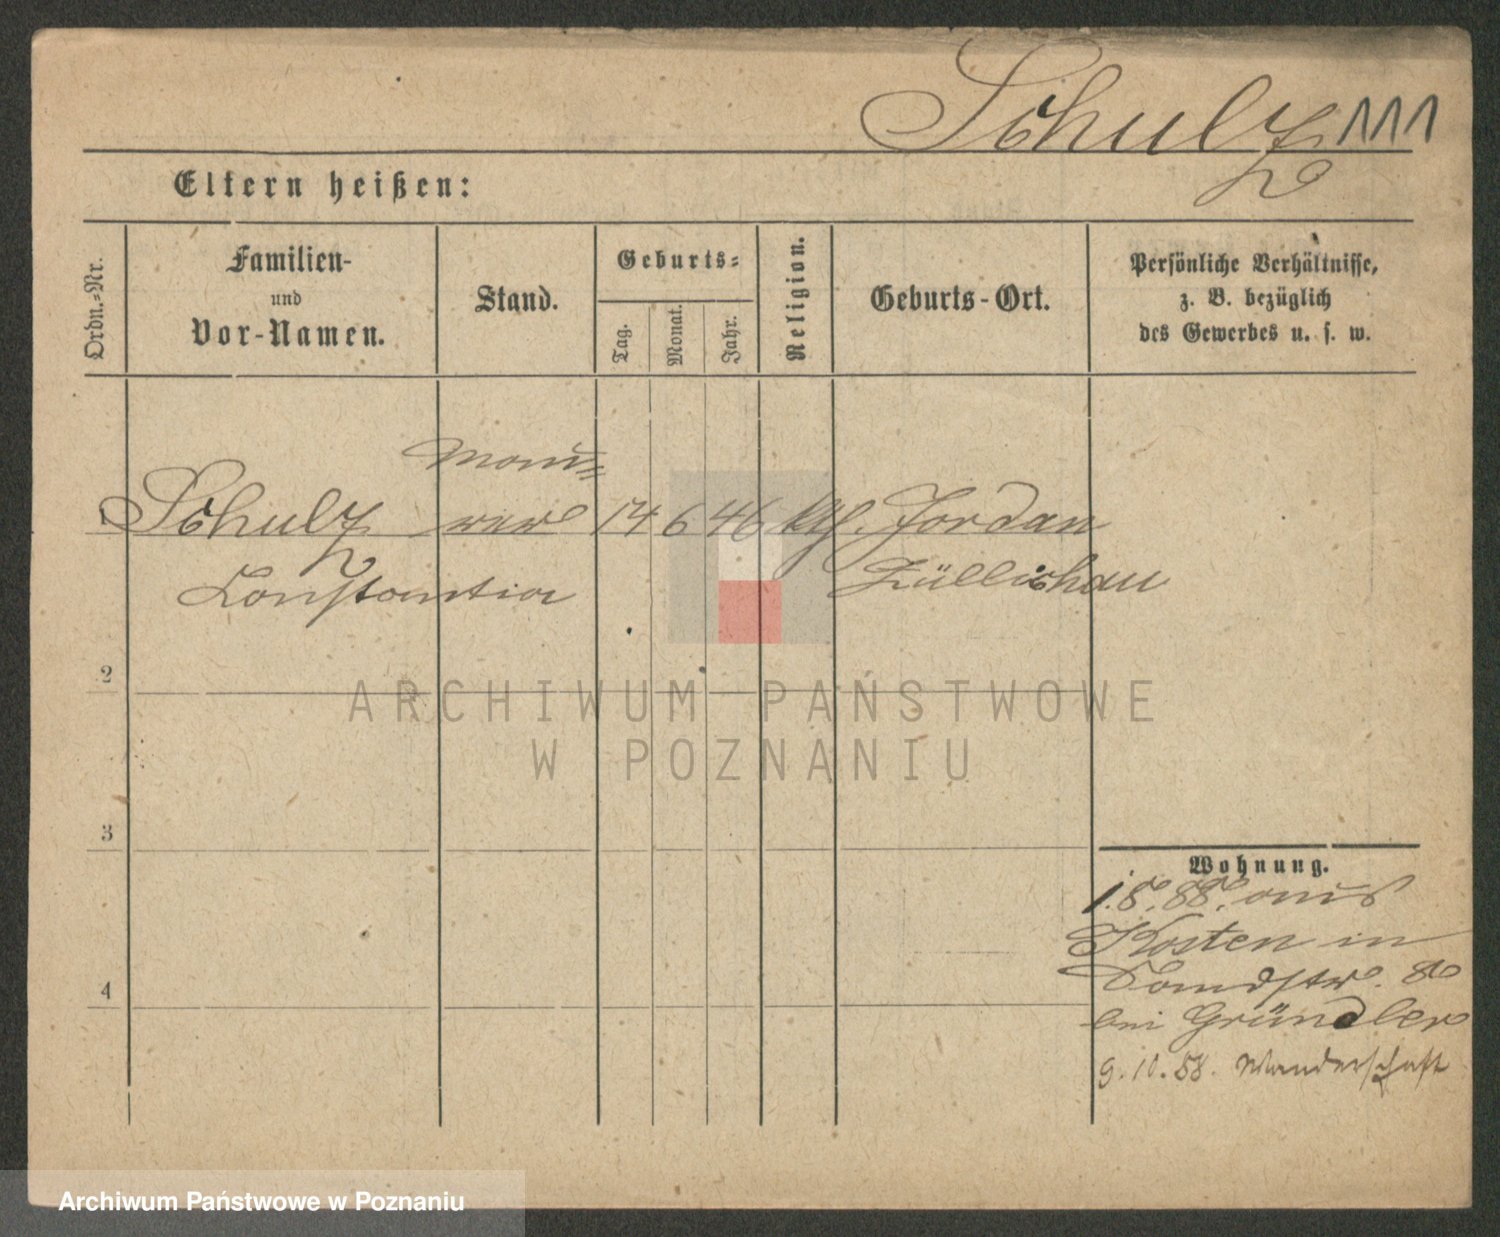 Schulz 111
Eltern heißen:
Ordn.-Nr.
Familien-
und
Vor-Namen.
Stand.
Geburts-
Tag.
Monat.
Jahr.
Religion.
Geburts-Ort.
Persönliche Verhältnisse,
z. B. bezüglich
des Gewerbes u. s. w.
Mau-
1 Schulz rer 14 6 46 Ktl. Jordan
Constantin Züllichau
2
ARCHIWUM PAŃSTWOWE
W POZNANIU
3
Wohnung.
1.8.88. aus
Kosten in
Landstr. 8
bei Gründler
9.10.88. Wanderschaft
4
Archiwum Państwowe w Poznaniu